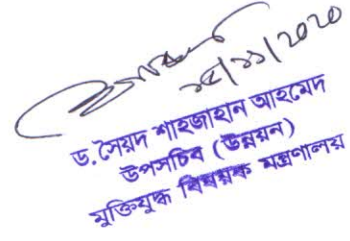 ১৫/১১/২০২০
ড. সৈয়দ শাহজাহান আহমেদ
উপসচিব (উন্নয়ন)
মুক্তিযুদ্ধ বিষয়ক মন্ত্রণালয়